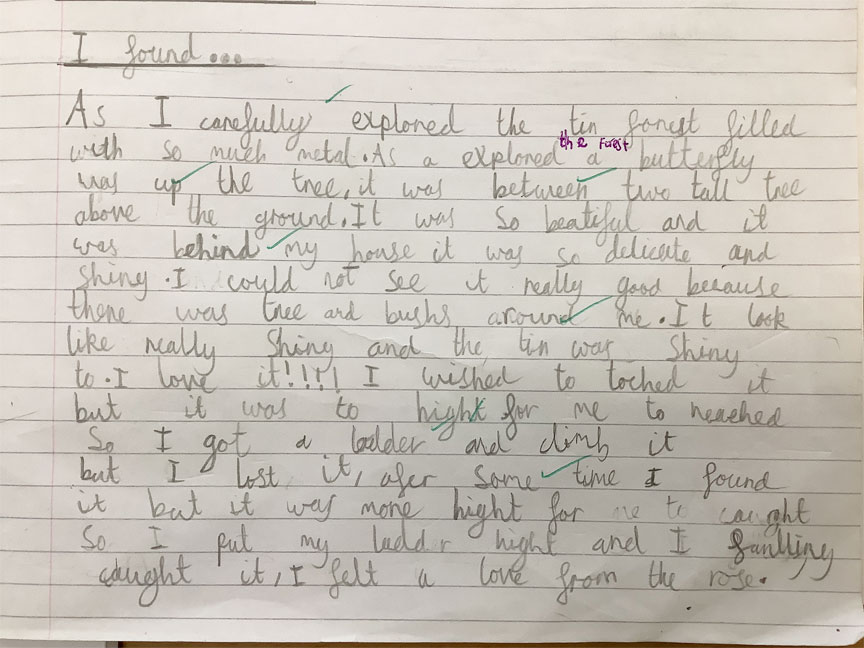 I found...
As I carefully explored the tin forest filled
the Forest
with so much metal. As a explored a butterfly
was up the tree, it was between two tall tree
above the ground. It was so beatiful and it
was behind my house it was so delicate and
shiny. I could not see it really good because
there was tree and bushs around me. It look
like really shiny and the tin was shiny
to. I love it!!!! I wished to toched it
but it was to hight for me to reached
So I got a ladder and climb it
but I lost it, afer some time I found
it but it was more hight for me to caught
So I put my ladder hight and I faulling
caught it, I felt a love from the rose.